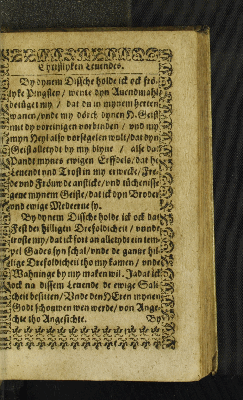 Chrystlyken Leuendes.
By dynem Dissche holde ick ock frö-
lyke Pingsten / wente dyn Auendmahl
betüget my / dat du in mynem herten
wanen / vnde my dörch dynen H. Geist
mit dy voreinigen vnde vorbinden / vnd my
myn Heyl also vorsegelen wult / dat dyn
Geist alletydt by my blyue / alse dat
Pandt mynes ewigen Erffdels / dat he
Leuendt vnd Trost in my erwecke / Fre-
de vnd Fröuwde ansticke / vnd tüchenisse
geue mynem Geiste / dat ick dyn Broder
vnd ewige Mederue sy.
By dynem Dissche holde ick ock dat
Fest der hilligen Drefoldicheit / vnnde
tröste my / dat ick fort an alletydt ein tem-
pel Gades syn schal / vnde de gantze hil-
lige Drefoldicheit tho my kamen / vnde
Wahninge by my maken wil. Ja dat ick
ock na dissem Leuende de ewige Sali-
cheit besitten / Vnde den HEren mynen
Godt schouwen wen werde / von Ange-
sichte tho Angesichte.
By